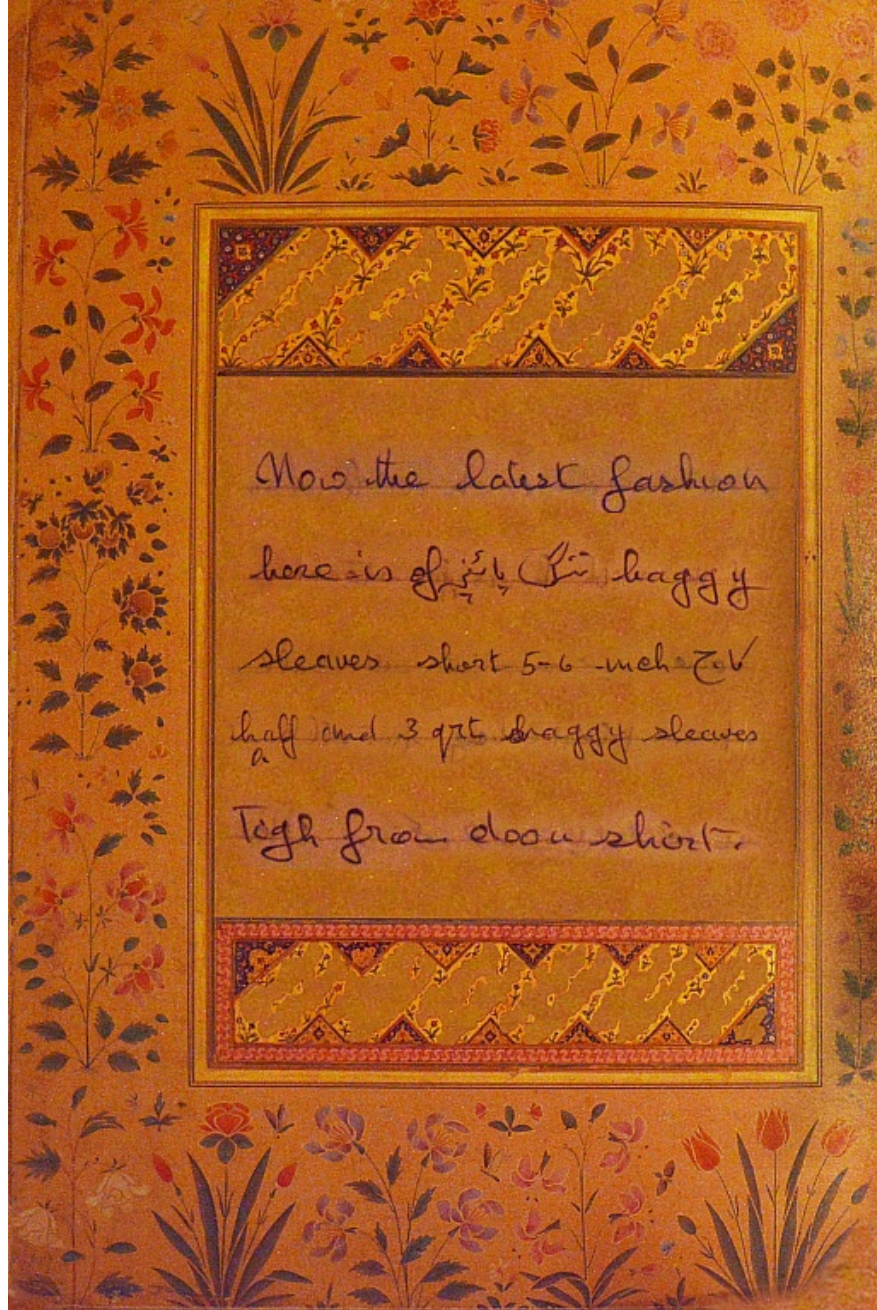 Now the latest fashion
here is of تنگ پائنچے baggy
sleaves short 5-6 inch چاک
half and 3 qrt baggy sleaves
Tigh from doon short.